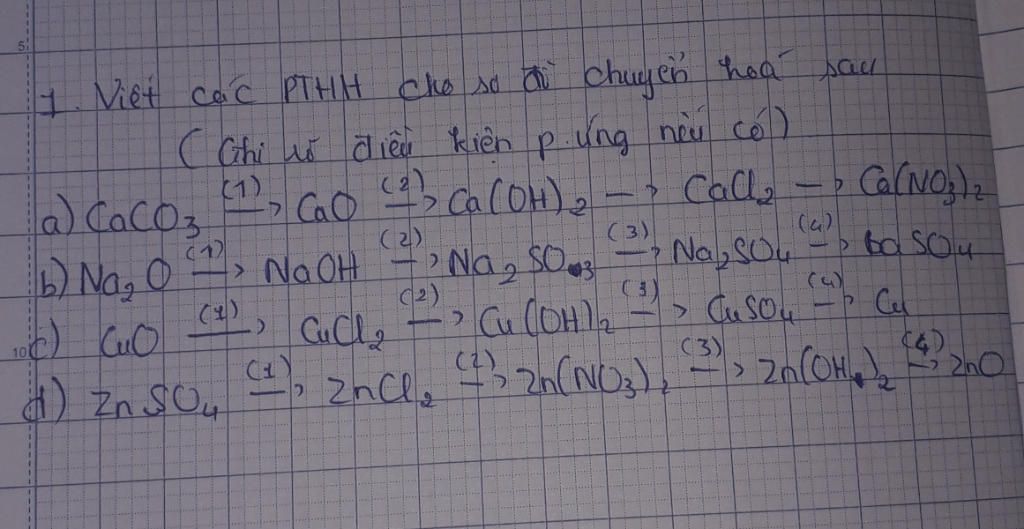 5
1. Viết các PTHH cho sơ đồ chuyển hoá sau
( Ghi rõ điều kiện p.ứng nếu có )
a) CaCO3 (1)→ CaO (2)→ Ca(OH)2 → CaCl2 → Ca(NO3)2
b) Na2O (1)→ NaOH (2)→ Na2SO3 (3)→ Na2SO4 (4)→ baSO4
10 c) CuO (1)→ CuCl2 (2)→ Cu(OH)2 (3)→ CuSO4 (4)→ Cu
d) ZnSO4 (1)→ ZnCl2 (2)→ Zn(NO3)2 (3)→ Zn(OH)2 (4)→ ZnO